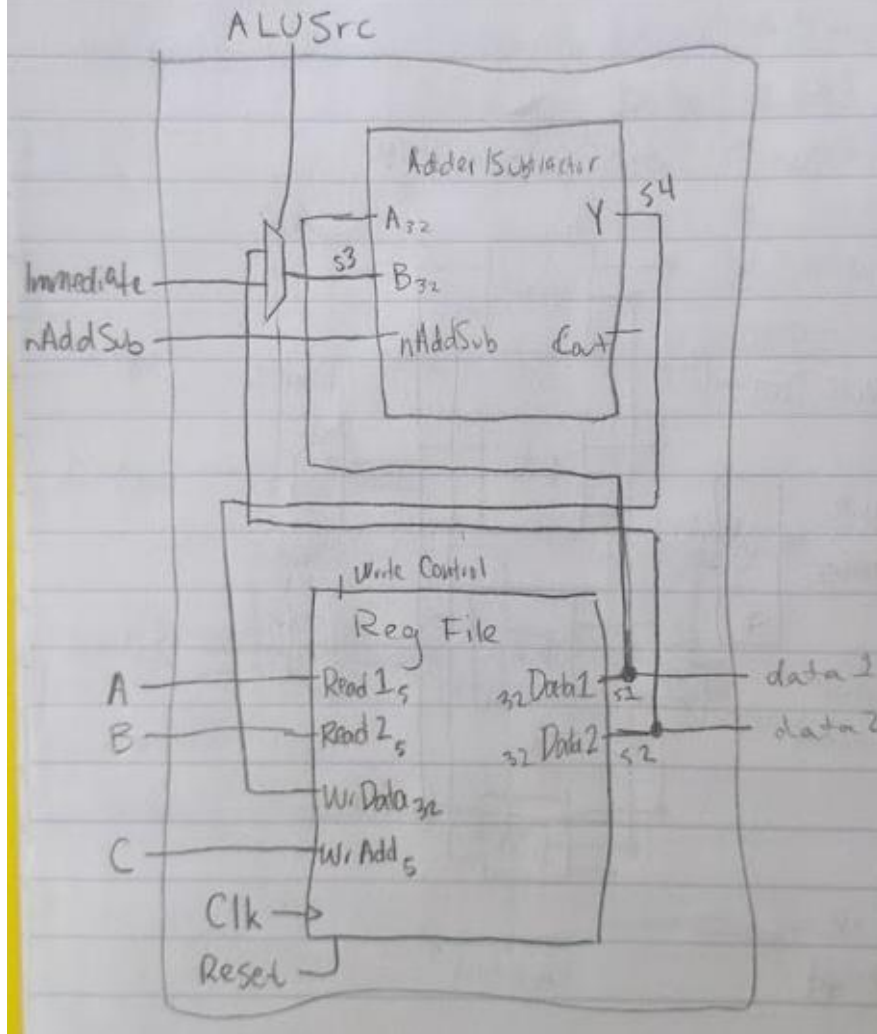 ALUSrc
Adder/Subtractor
S4
A32
Y
S3
Immediate
B32
nAddSub
nAddSub
Cout
Write Control
Reg File
A
Read 1 5
32 Data1
S1
data 1
B
Read 2 5
32 Data2
S2
data 2
WrData 32
C
WrAdd 5
Clk
Reset